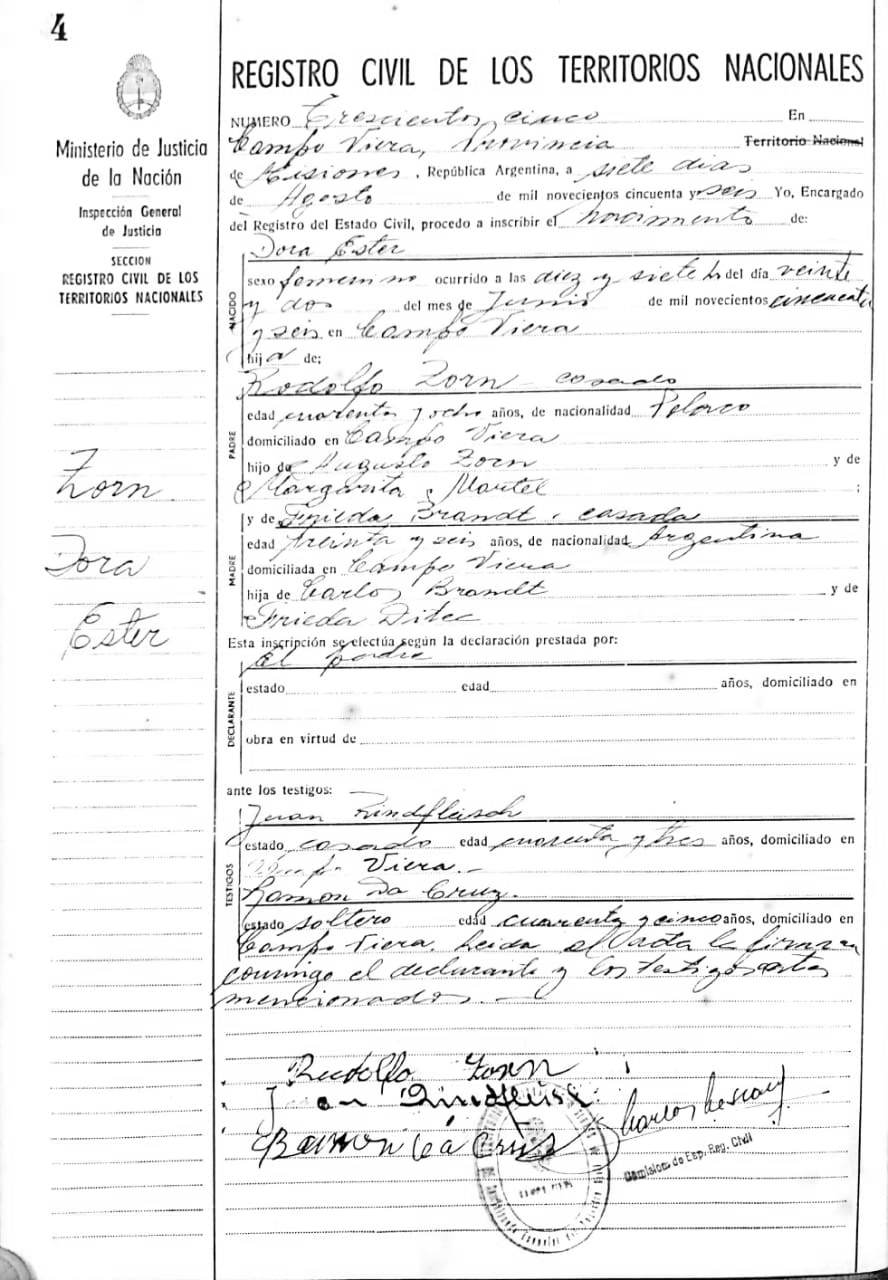 4
Ministerio de Justicia
de la Nación
Inspección General
de Justicia
SECCION
REGISTRO CIVIL DE LOS
TERRITORIOS NACIONALES
Zorn
Dora
Ester
REGISTRO CIVIL DE LOS TERRITORIOS NACIONALES
NUMERO Trescientos cinco En
Campo Viera, Provincia Territorio Nacional
de Misiones, República Argentina, a siete dias
de Agosto de mil novecientos cincuenta y seis Yo, Encargado
del Registro del Estado Civil, procedo a inscribir el nacimiento de:
Dora Ester
NACIDO
sexo femenino ocurrido a las diez y siete h. del día veinte
y dos del mes de Junio de mil novecientos cincuenta
y seis en Campo Viera
hija de;
Rodolfo Zorn casado
PADRE
edad cuarenta y ocho años, de nacionalidad Polaco
domiciliado en Campo Viera
hijo de Augusto Zorn y de
Margarita Martel ;
MADRE
y de Frieda Brandt. casada
edad treinta y seis años, de nacionalidad Argentina
domiciliada en Campo Viera
hija de Carlos Brandt y de
Frieda Ditec
Esta inscripción se efectúa según la declaración prestada por:
el padre
DECLARANTE
estado edad años, domiciliado en
obra en virtud de
ante los testigos:
Juan Rindfleisch
TESTIGOS
estado casado edad cuarenta y tres años, domiciliado en
Campo Viera.-
Ramon Da Cruz.
estado soltero edad cuarenta y cinco años, domiciliado en
Campo Viera. Leida el acta la firman
conmigo el declarante y los testigos antes
mencionados.-
Rudolfo Zorn
Juan Rindfleisch
Ramon Da Cruz
Comision de Esp. Reg. Civil